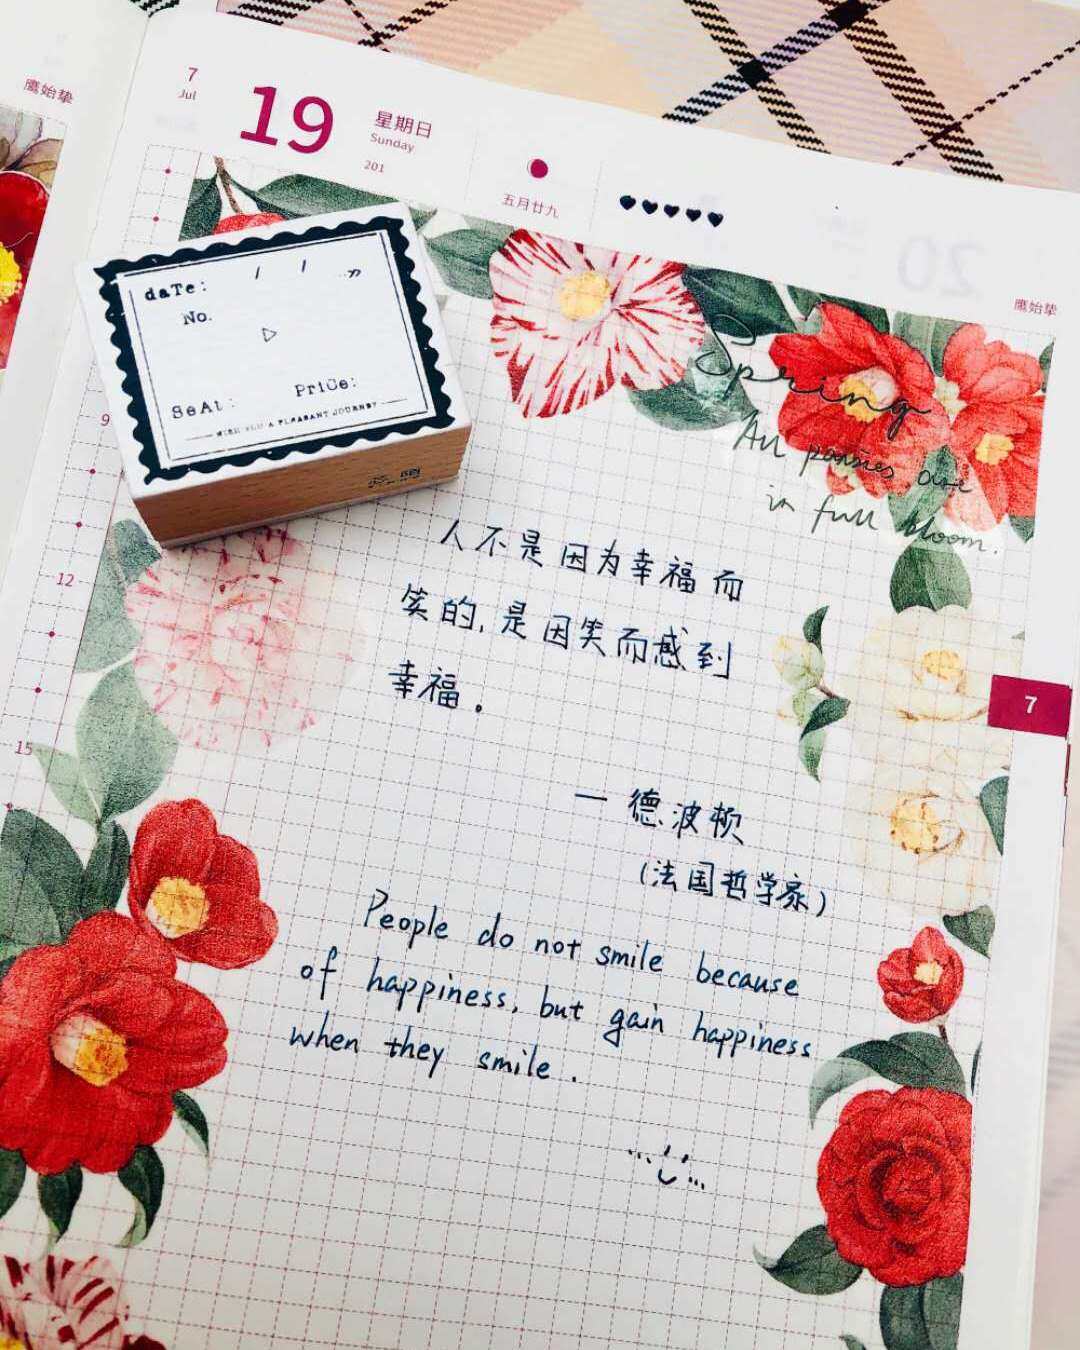 鷹始摯
7
Jul
19
星期日
Sunday
201
五月廿九
♥♥♥♥♥
20
鷹始摯
daTe: / /
No.
SeAt: PriCe:
WISH YOU A PLEASANT JOURNEY
Spring
All pansies are
in full bloom.
9
12
15
7
人不是因为幸福而
笑的,是因笑而感到
幸福。
— 德波顿
(法国哲学家)
People do not smile because
of happiness, but gain happiness
when they smile.